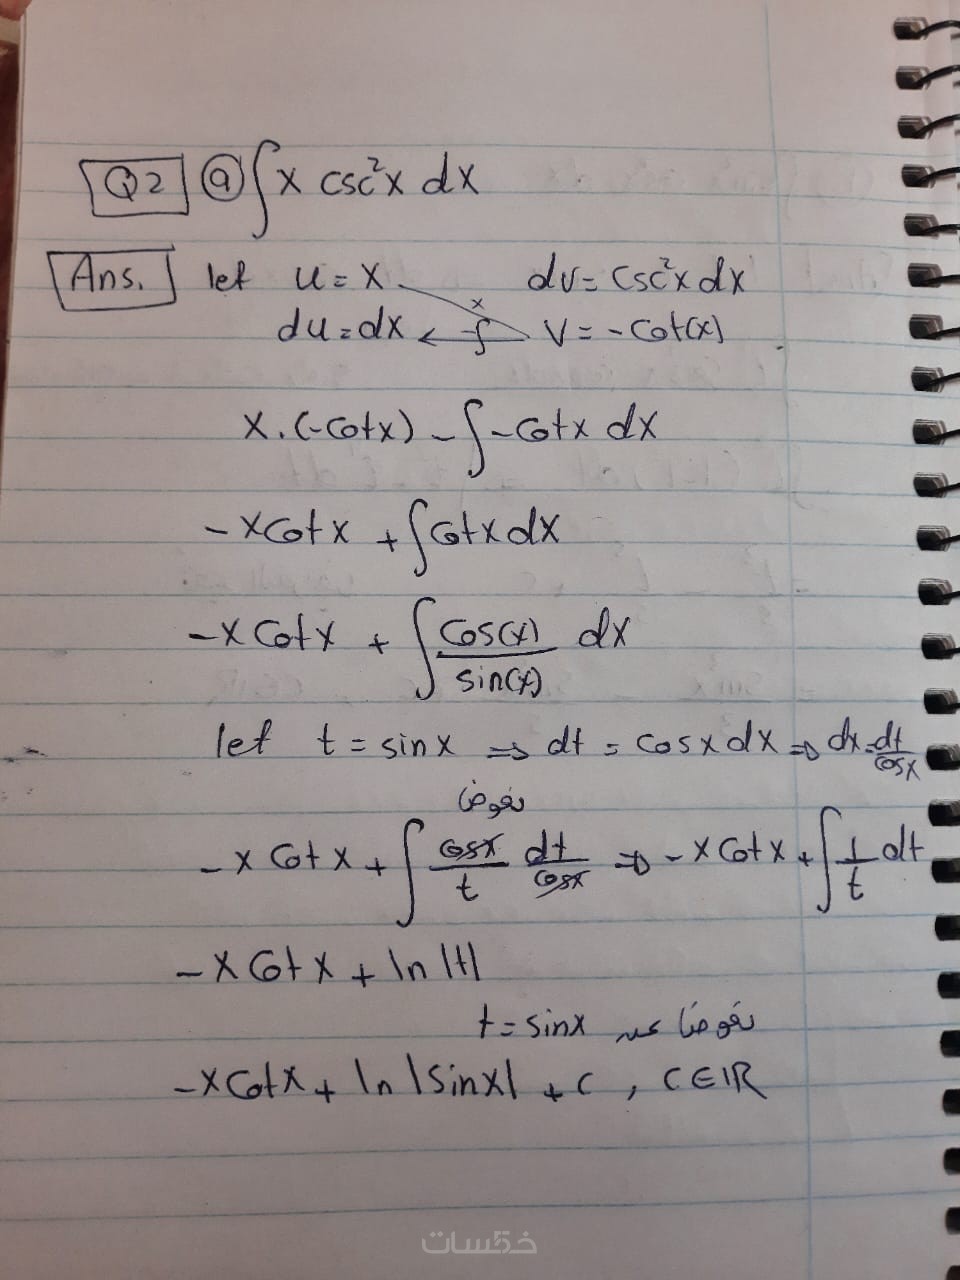 Q2 ⓐ ∫ x csc²x dx
Ans. let u = x dv = csc²x dx
du = dx ← ∫ x v = -cot(x)
x.(-cotx) - ∫ -cotx dx
-xcotx + ∫ cotx dx
-x cotx + ∫ cos(x)/sin(x) dx
let t = sinx ⇒ dt = cosx dx ⇒ dx = dt/cosx
نعوض
-x cotx + ∫ cosx/t dt/cosx ⇒ -x cotx + ∫ 1/t dt
-x cotx + ln |t|
t = sinx نعوض عن
-xcotx + ln |sinx| + c , c∈ℝ
خمسات